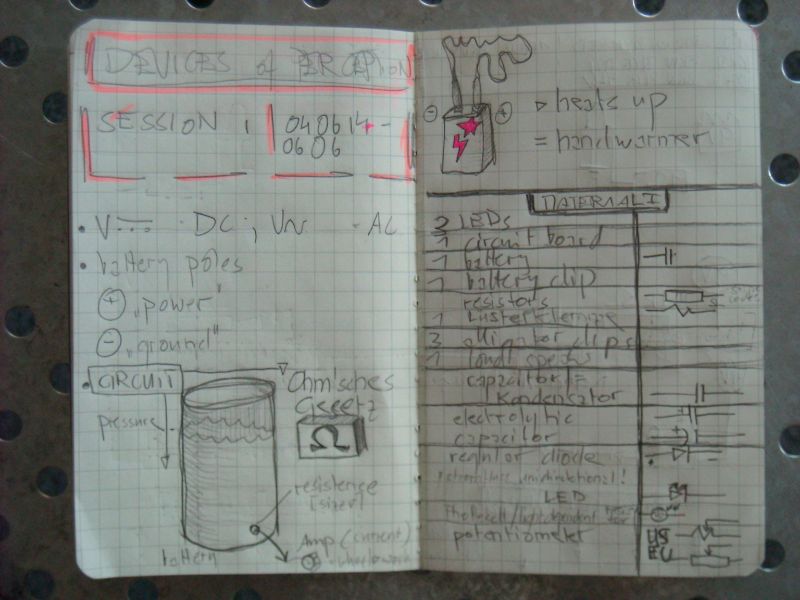 DEVICES of PERCEPTION
SESSION 1
040614 -
0606
• V · DC ; V~ · AC
• battery poles
⊕ „power"
⊖ „ground"
• CIRCUIT
Ohm'sches
Gesetz
Ω
pressure
resistence
[sizer]
Amp (current)
battery
⊖ ⊕
▷ heats up
= handwarmer
MATERIAL I
2 LEDs
1 circuit board
1 battery
1 battery clip
resistors
1 Lüsterklemme
3 alligator clips
1 loud speaker
capacitor =
Kondensator
electrolytic
capacitor
regular diode
unidirectional!
LED
Photocell / light dependent
potentiometer
US
EU